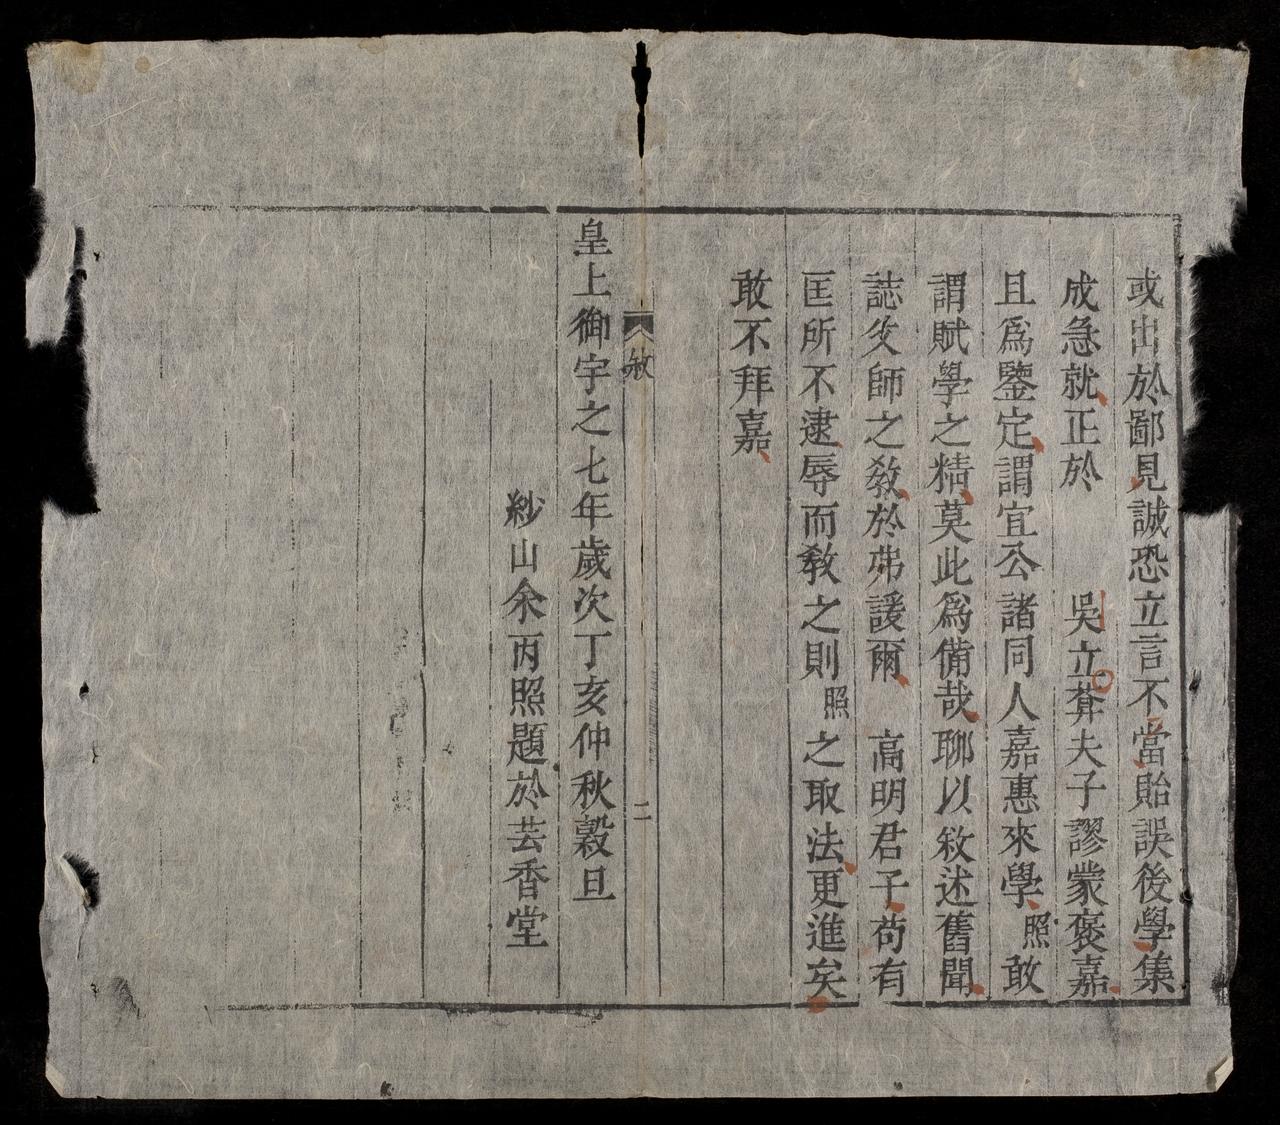 或出於鄙見誠恐立言不當貽誤後學集
成急就正於　吳立葊夫子謬蒙褒嘉
且爲鑒定謂宜公諸同人嘉惠來學照敢
謂賦學之精莫此爲備哉聊以敘述舊聞
誌父師之教於弗諼爾　高明君子苟有
匡所不逮辱而教之則照之取法更進矣
敢不拜嘉
敘
二
皇上御宇之七年歲次丁亥仲秋穀旦
紗山余丙照題於芸香堂